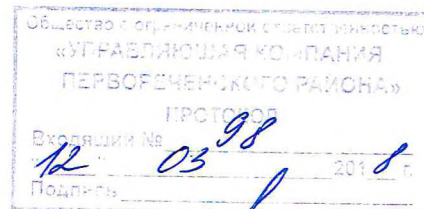 Общество с ограниченной ответственностью
«УПРАВЛЯЮЩАЯ КОМПАНИЯ
ПЕРВОРЕЧЕНСКОГО РАЙОНА»
ПРОТОКОЛ
Входящий № 98
12 03 2018 г.
Подпись